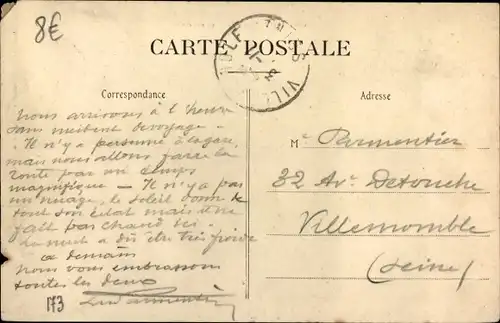 8€
CARTE POSTALE
Correspondance
Adresse
nous arrivons à l'heure
sans incident de voyage
Il n'y a personne à la gare
mais nous allons faire la
route par un temps
magnifique — Il n'y a pas
un nuage, le soleil donne de
tout son éclat mais il ne
fait pas chaud
La nuit a dû être très froide
a demain
nous vous embrassons
toutes les deux
Parmentier
173
M Parmentier
32 Av. Detouche
Villemomble
(Seine)